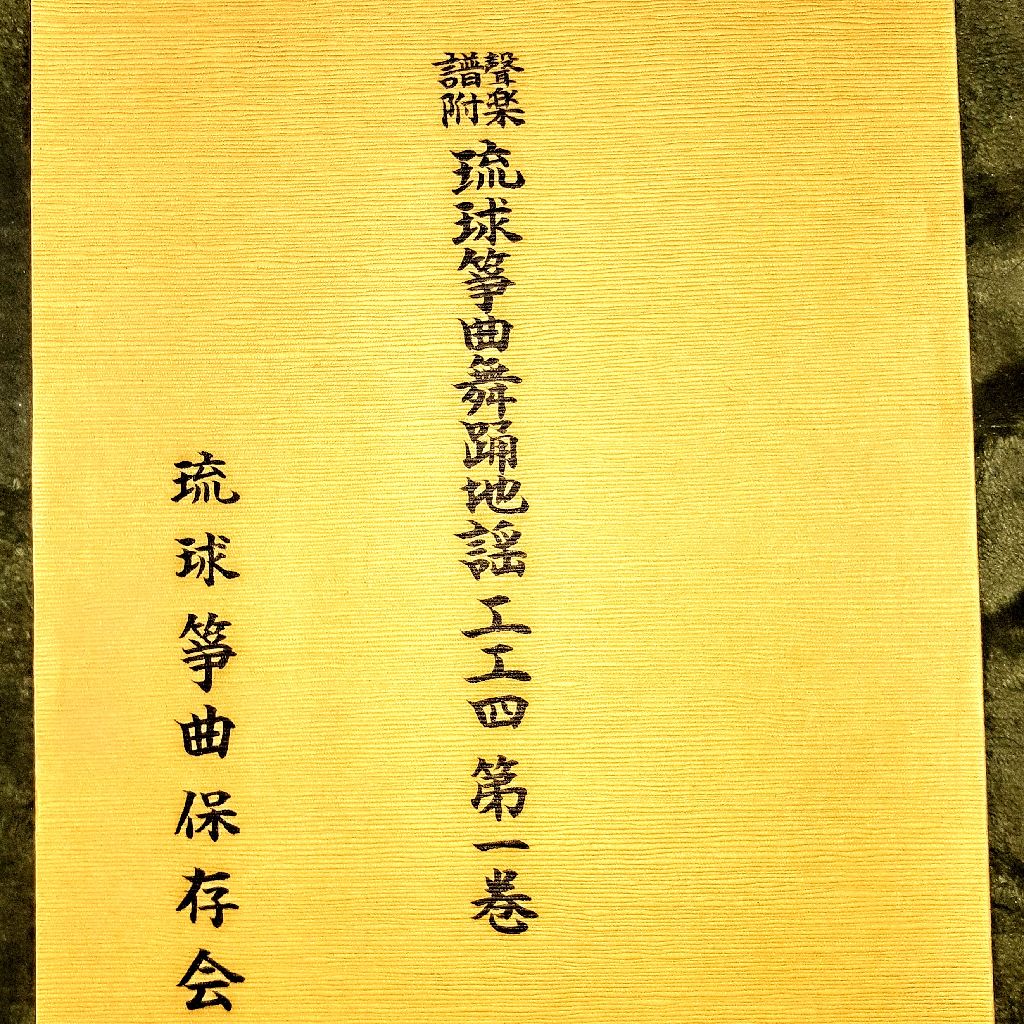 聲楽譜附
琉球箏曲舞踊地謡工工四 第一巻
琉球箏曲保存会